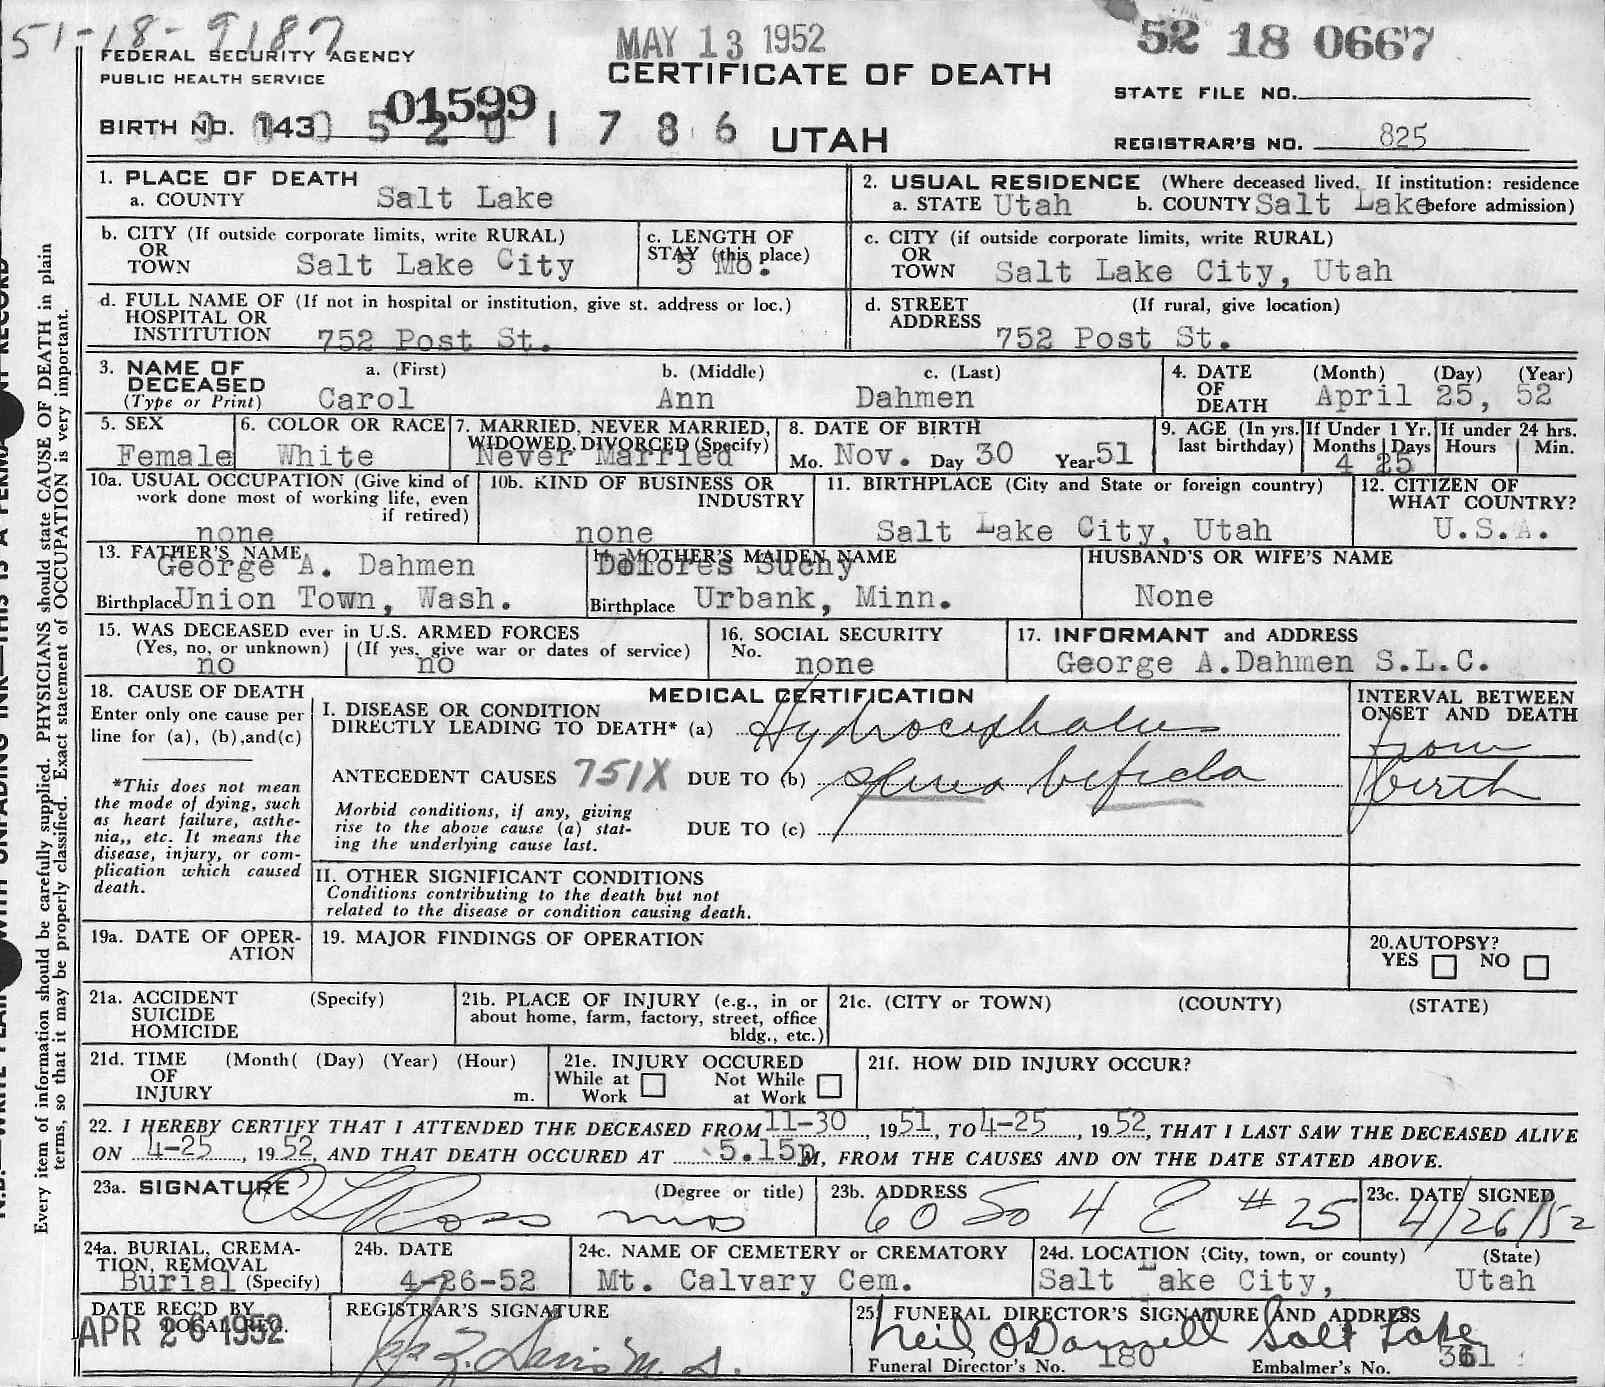 51-18-9187
MAY 13 1952
52 18 0667
FEDERAL SECURITY AGENCY
PUBLIC HEALTH SERVICE
CERTIFICATE OF DEATH
STATE FILE NO.
01599
BIRTH NO. 143 5 2 0 1 7 8 6 UTAH
REGISTRAR'S NO. 825
1. PLACE OF DEATH
a. COUNTY Salt Lake
2. USUAL RESIDENCE (Where deceased lived. If institution: residence
a. STATE Utah b. COUNTY Salt Lake before admission)
b. CITY (If outside corporate limits, write RURAL)
OR
TOWN Salt Lake City
c. LENGTH OF
STAY (this place)
5 Mo.
c. CITY (if outside corporate limits, write RURAL)
OR
TOWN Salt Lake City, Utah
d. FULL NAME OF (If not in hospital or institution, give st. address or loc.)
HOSPITAL OR
INSTITUTION 752 Post St.
d. STREET (If rural, give location)
ADDRESS 752 Post St.
3. NAME OF a. (First) b. (Middle) c. (Last)
DECEASED
(Type or Print) Carol Ann Dahmen
4. DATE (Month) (Day) (Year)
OF
DEATH April 25, 52
5. SEX
Female
6. COLOR OR RACE
White
7. MARRIED, NEVER MARRIED,
WIDOWED, DIVORCED (Specify)
Never Married
8. DATE OF BIRTH
Mo. Nov. Day 30 Year 51
9. AGE (In yrs. last birthday)
If Under 1 Yr. If under 24 hrs.
Months Days Hours Min.
4 25
10a. USUAL OCCUPATION (Give kind of
work done most of working life, even
if retired)
none
10b. KIND OF BUSINESS OR
INDUSTRY
none
11. BIRTHPLACE (City and State or foreign country)
Salt Lake City, Utah
12. CITIZEN OF
WHAT COUNTRY?
U.S.A.
13. FATHER'S NAME
George A. Dahmen
Birthplace Union Town, Wash.
14. MOTHER'S MAIDEN NAME
Dolores Suchy
Birthplace Urbank, Minn.
HUSBAND'S OR WIFE'S NAME
None
15. WAS DECEASED ever in U.S. ARMED FORCES
(Yes, no, or unknown) (If yes, give war or dates of service)
no no
16. SOCIAL SECURITY
No. none
17. INFORMANT and ADDRESS
George A.Dahmen S.L.C.
18. CAUSE OF DEATH
Enter only one cause per
line for (a), (b),and(c)
*This does not mean
the mode of dying, such
as heart failure, asthe-
nia,, etc. It means the
disease, injury, or com-
plication which caused
death.
MEDICAL CERTIFICATION
I. DISEASE OR CONDITION
DIRECTLY LEADING TO DEATH* (a) Hydrocephalus
ANTECEDENT CAUSES 751X DUE TO (b) spina bifida
Morbid conditions, if any, giving
rise to the above cause (a) stat-
ing the underlying cause last.
DUE TO (c)
INTERVAL BETWEEN
ONSET AND DEATH
from
birth
II. OTHER SIGNIFICANT CONDITIONS
Conditions contributing to the death but not
related to the disease or condition causing death.
19a. DATE OF OPER-
ATION
19. MAJOR FINDINGS OF OPERATION
20.AUTOPSY?
YES NO
21a. ACCIDENT (Specify)
SUICIDE
HOMICIDE
21b. PLACE OF INJURY (e.g., in or
about home, farm, factory, street, office
bldg., etc.)
21c. (CITY or TOWN) (COUNTY) (STATE)
21d. TIME (Month( (Day) (Year) (Hour)
OF
INJURY m.
21e. INJURY OCCURED
While at Not While
Work at Work
21f. HOW DID INJURY OCCUR?
22. I HEREBY CERTIFY THAT I ATTENDED THE DECEASED FROM 11-30, 1951, TO 4-25, 1952, THAT I LAST SAW THE DECEASED ALIVE
ON 4-25, 1952, AND THAT DEATH OCCURED AT 5.15p M, FROM THE CAUSES AND ON THE DATE STATED ABOVE.
23a. SIGNATURE (Degree or title)
Ross MD
23b. ADDRESS
60 So 4 E #25
23c. DATE SIGNED
4/26/52
24a. BURIAL, CREMA-
TION, REMOVAL
Burial (Specify)
24b. DATE
4-26-52
24c. NAME OF CEMETERY or CREMATORY
Mt. Calvary Cem.
24d. LOCATION (City, town, or county) (State)
Salt Lake City, Utah
DATE REC'D BY
LOCAL REG.
APR 26 1952
REGISTRAR'S SIGNATURE
M.D.
25 FUNERAL DIRECTOR'S SIGNATURE AND ADDRESS
Neil O'Donnell Salt Lake
Funeral Director's No. 180 Embalmer's No. 361
Every item of information should be carefully supplied. PHYSICIANS should state CAUSE OF DEATH in plain
terms, so that it may be properly classified. Exact statement of OCCUPATION is very important.